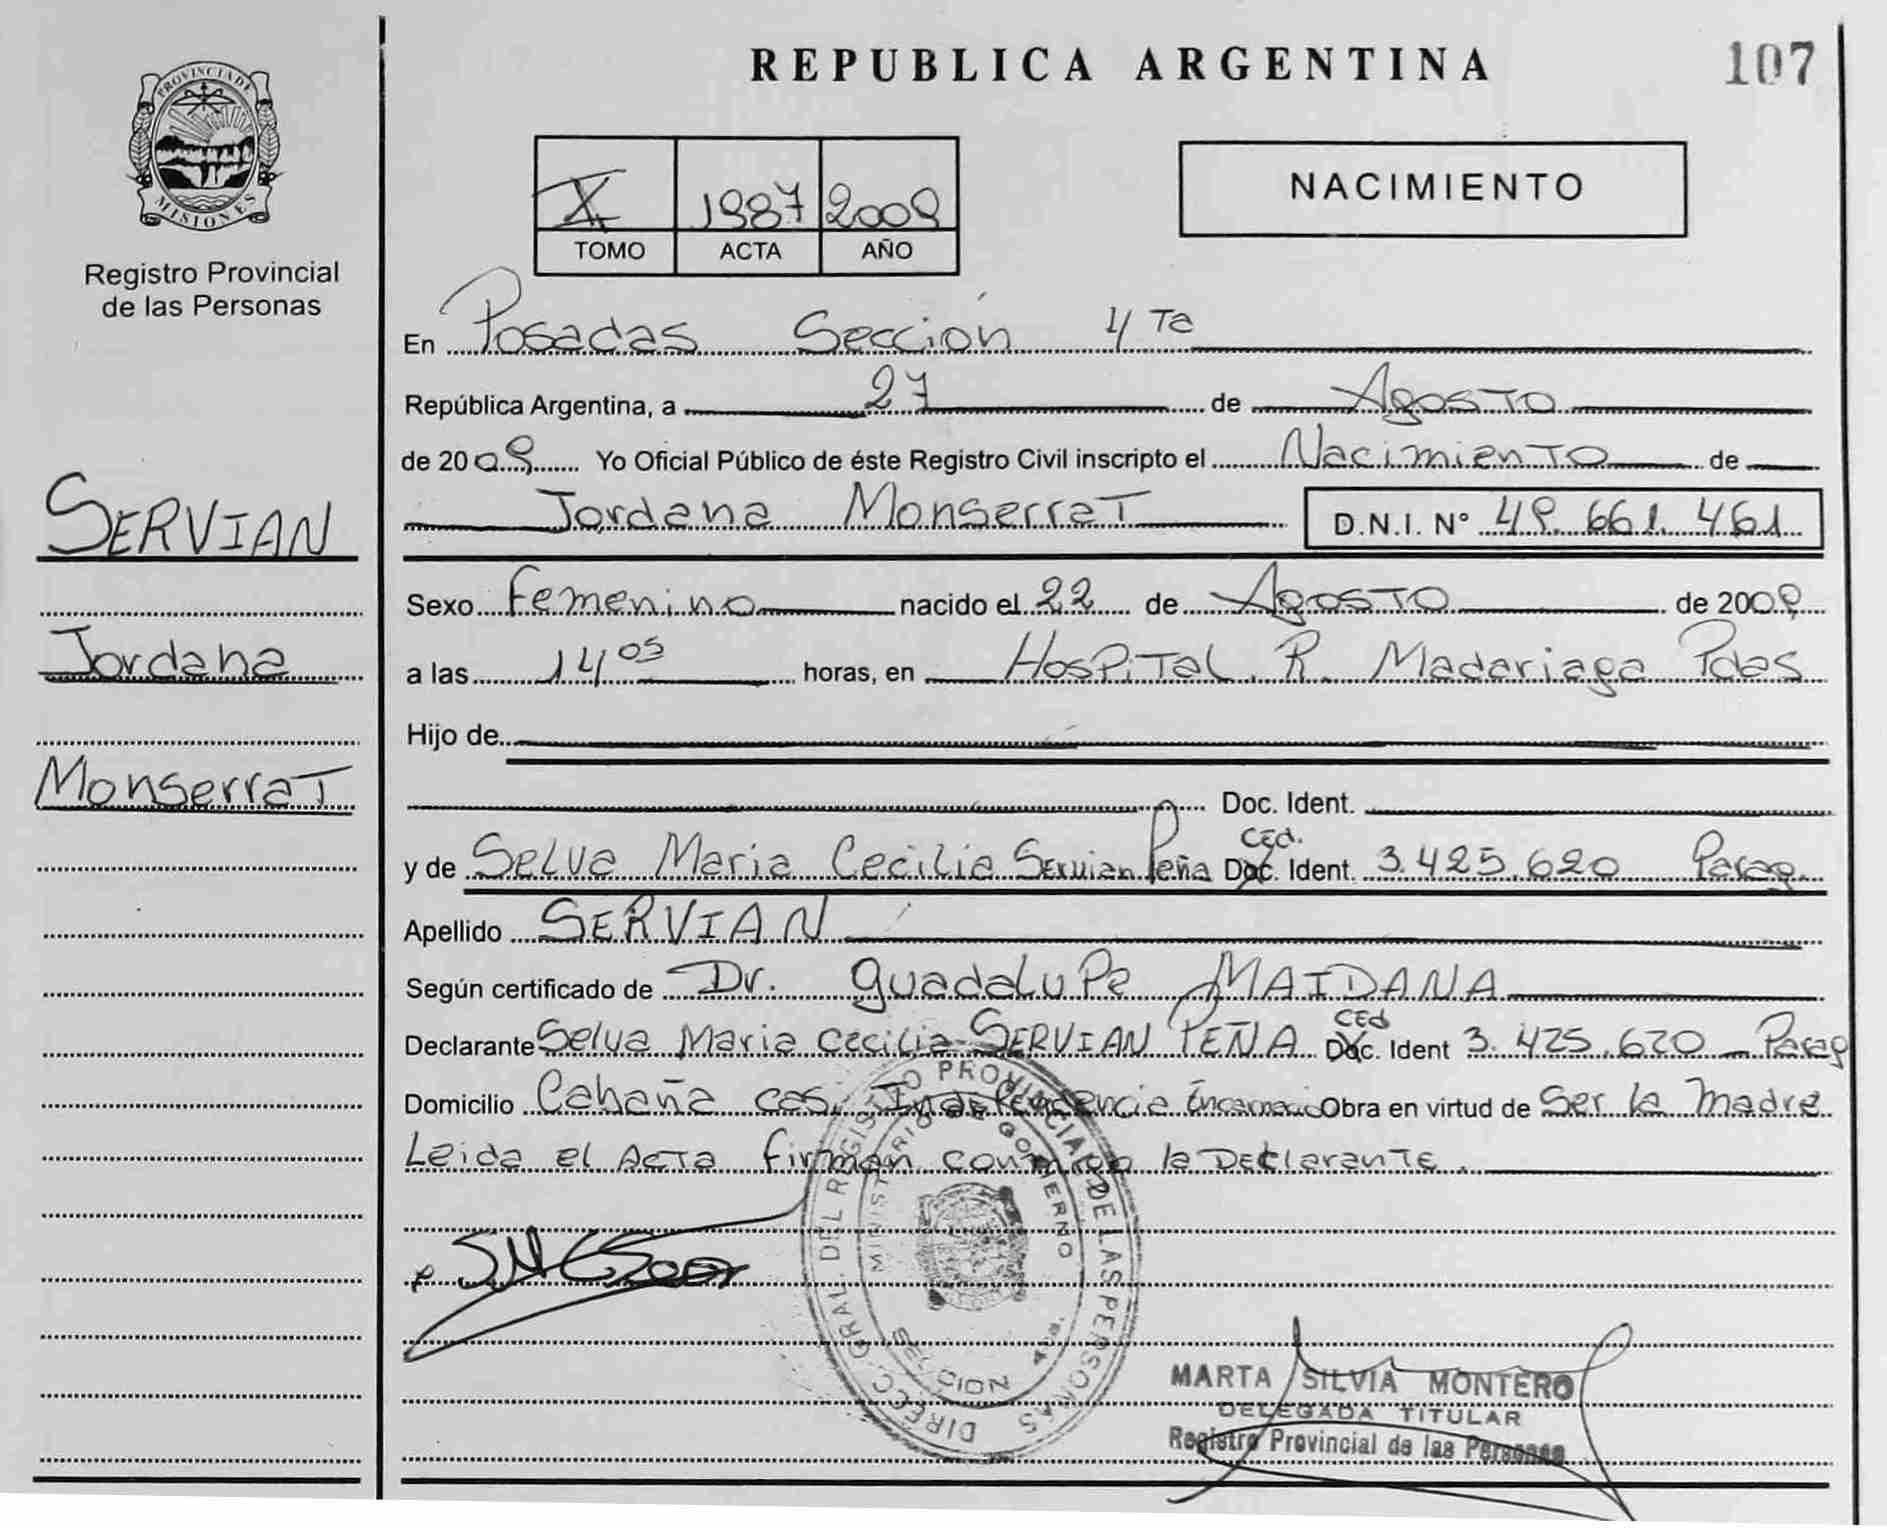 REPUBLICA ARGENTINA
107
PROVINCIA DE MISIONES
Registro Provincial
de las Personas
X 1987 2009
TOMO ACTA AÑO
NACIMIENTO
SERVIAN
Jordana
Monserrat
En Posadas Sección 4 Ta
República Argentina, a 27 de Agosto
de 2009 Yo Oficial Público de éste Registro Civil inscripto el Nacimiento de
Jordana Monserrat D.N.I. N° 49.661.461
Sexo Femenino nacido el 22 de Agosto de 2009
a las 14 05 horas, en Hospital R. Madariaga Pdas
Hijo de
Doc. Ident.
y de Selva Maria Cecilia Servian Peña Ced. Doc. Ident. 3.425.620 Parag.
Apellido SERVIAN
Según certificado de Dr. Guadalupe MAIDANA
Declarante Selva Maria Cecilia SERVIAN PEÑA Ced Doc. Ident 3.425.620 Parag
Domicilio Cahaña cas. Independencia Encarnac. Obra en virtud de Ser la Madre
Leida el Acta firman conmigo la Declarante.
DIRECC. GRAL. DEL REGISTRO PROVINCIAL DE LAS PERSONAS
MINISTERIO DE GOBIERNO
MARTA SILVIA MONTERO
DELEGADA TITULAR
Registro Provincial de las Personas